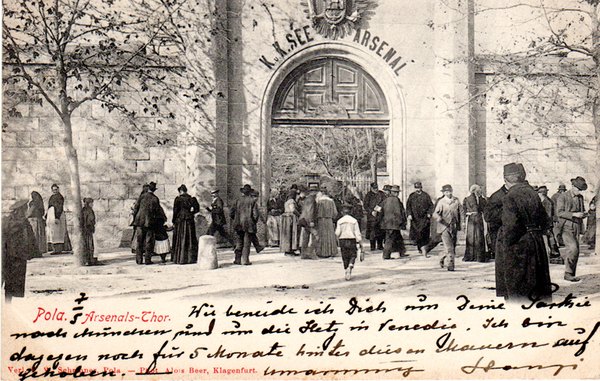 K. K. SEE ARSENAL
Pola. 7/5 Arsenals-Thor.
Wie beneide ich Dich um Deine Partie
nach München und um die Hetz in Venedig. Ich bin
dagegen noch für 5 Monate hinter diesen Mauern auf
gehoben. Umarmung
Verlag Schrinner, Pola. — Phot. Alois Beer, Klagenfurt.